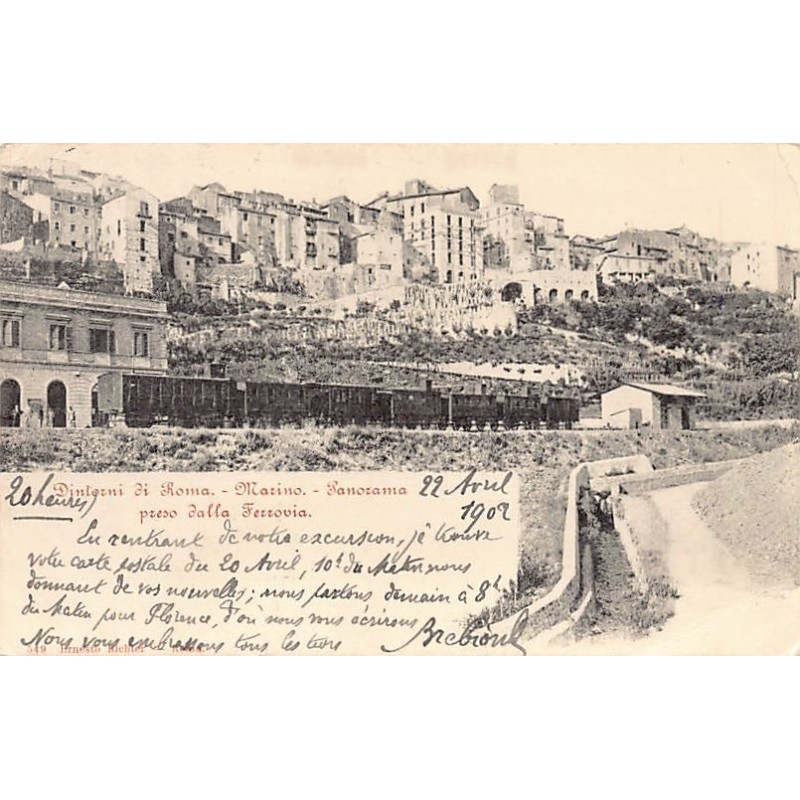 20 heures) Dintorni di Roma. - Marino. - Panorama 22 Avril
preso dalla Ferrovia. 1902
En rentrant de votre excursion, je trouve
votre carte postale du 20 Avril, 10h du Matin, nous
donnant de vos nouvelles; nous partons demain à 8h
du Matin pour Florence, d'où nous vous écrirons
Nous vous embrassons tous les trois
549 Ernesto Richter - Roma.